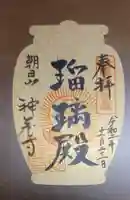 奉拝
令和二年
十一月二十三日
瑠璃殿
朝日山
神蔵寺